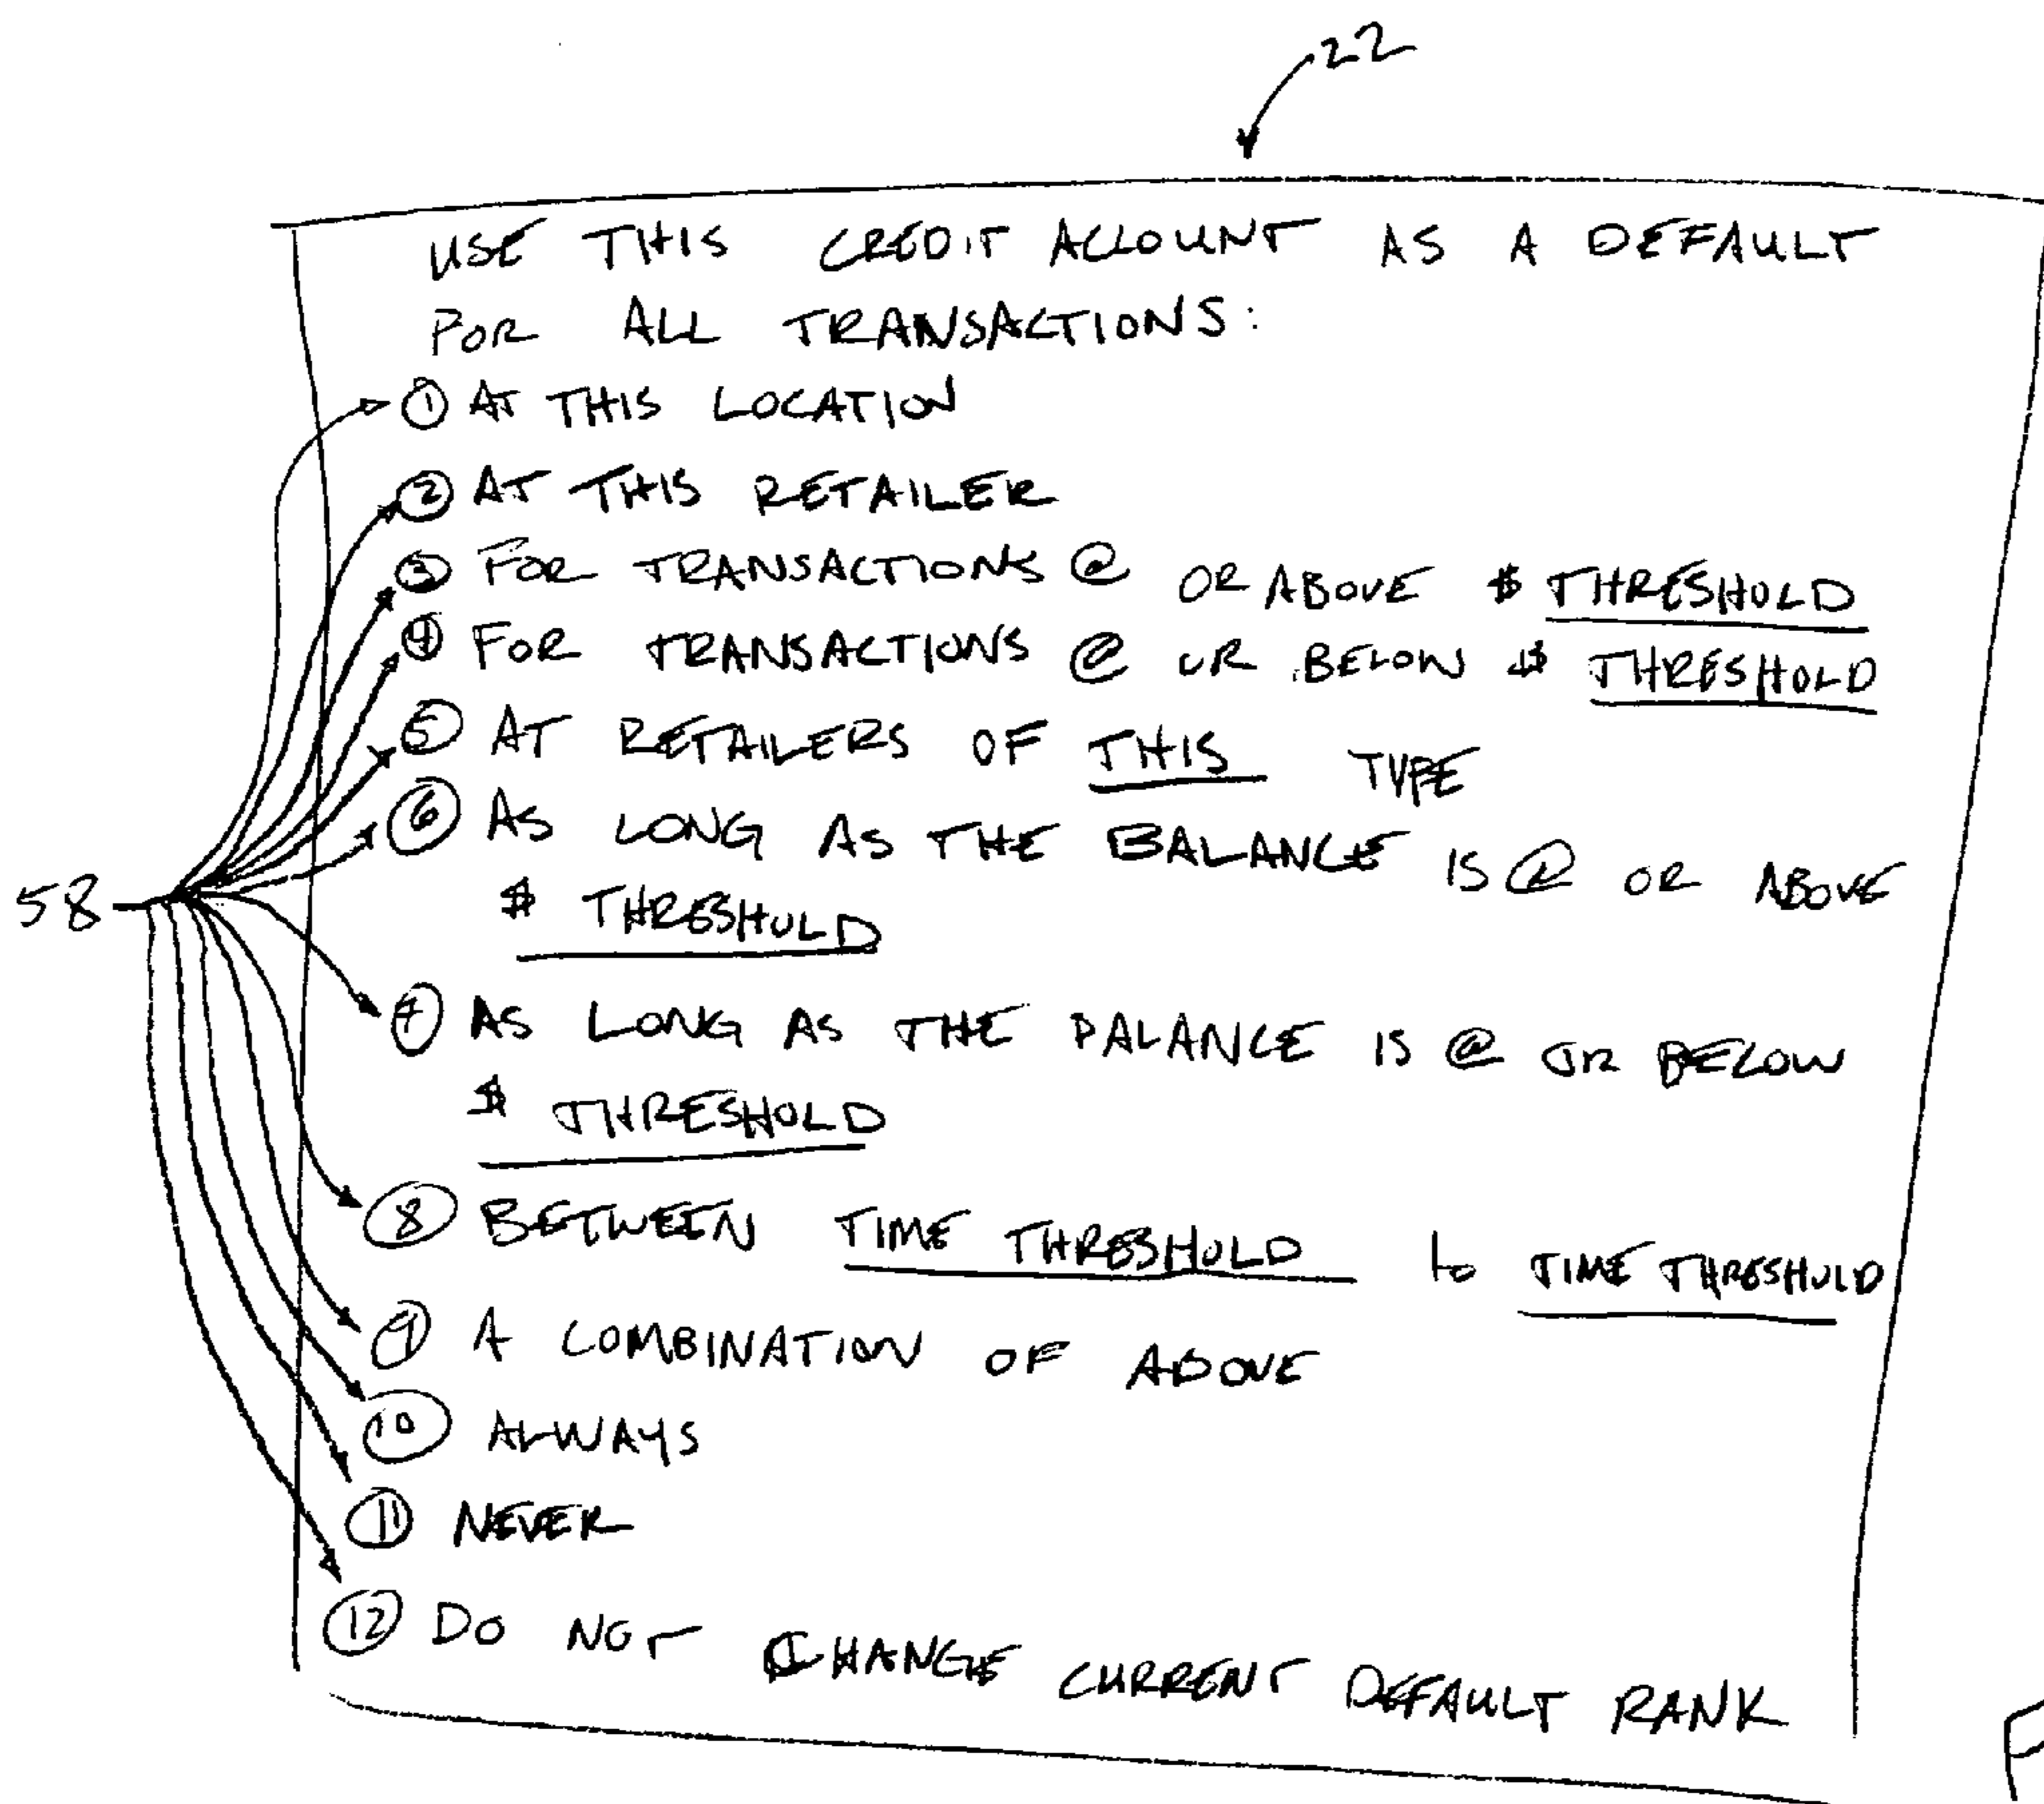 22
USE THIS CREDIT ACCOUNT AS A DEFAULT
FOR ALL TRANSACTIONS:
① AT THIS LOCATION
② AT THIS RETAILER
③ FOR TRANSACTIONS @ OR ABOVE $ THRESHOLD
④ FOR TRANSACTIONS @ OR BELOW $ THRESHOLD
⑤ AT RETAILERS OF THIS TYPE
⑥ AS LONG AS THE BALANCE IS @ OR ABOVE
$ THRESHOLD
58
⑦ AS LONG AS THE BALANCE IS @ OR BELOW
$ THRESHOLD
⑧ BETWEEN TIME THRESHOLD to TIME THRESHOLD
⑨ A COMBINATION OF ABOVE
⑩ ALWAYS
⑪ NEVER
⑫ DO NOT CHANGE CURRENT DEFAULT RANK